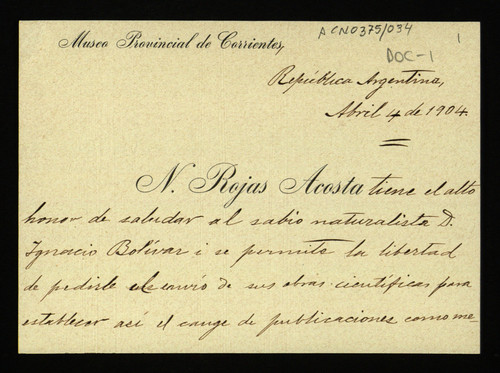 ACN0375/034
1
DOC-1
Museo Provincial de Corrientes,
República Argentina,
Abril 4 de 1904.
N. Rojas Acosta tiene el alto
honor de saludar al sabio naturalista D.
Ignacio Bolívar i se permite la libertad
de pedirle el envío de sus obras cientificas para
establecer así el cange de publicaciones como me-